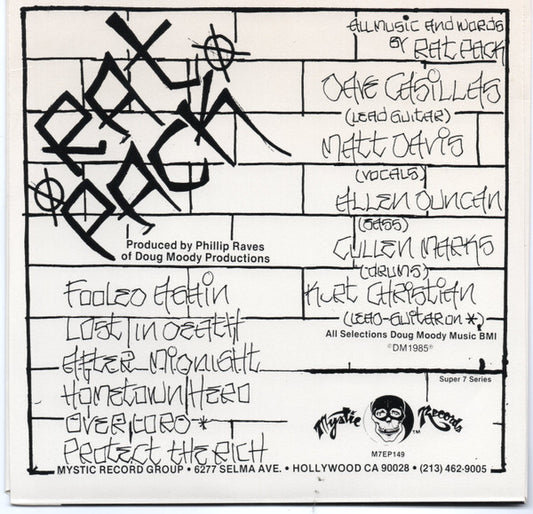 RAT
PACK
Produced by Phillip Raves
of Doug Moody Productions
ALL MUSIC AND WORDS
BY RAT PACK
DAVE CASILLAS
(LEAD GUITAR)
MATT DAVIS
(VOCALS)
ALLEN DUNCAN
(BASS)
CULLEN MARKS
(DRUMS)
KURT CHRISTIAN
(LEAD-GUITAR ON *)
All Selections Doug Moody Music BMI
©DM1985℗
FOOLED AGAIN
LOST IN DEATH
AFTER MIDNIGHT
HOMETOWN HERO
OVER CORO *
PROTECT THE RICH
Super 7 Series
Mystic Records
TM
M7EP149
MYSTIC RECORD GROUP • 6277 SELMA AVE. • HOLLYWOOD CA 90028 • (213) 462-9005